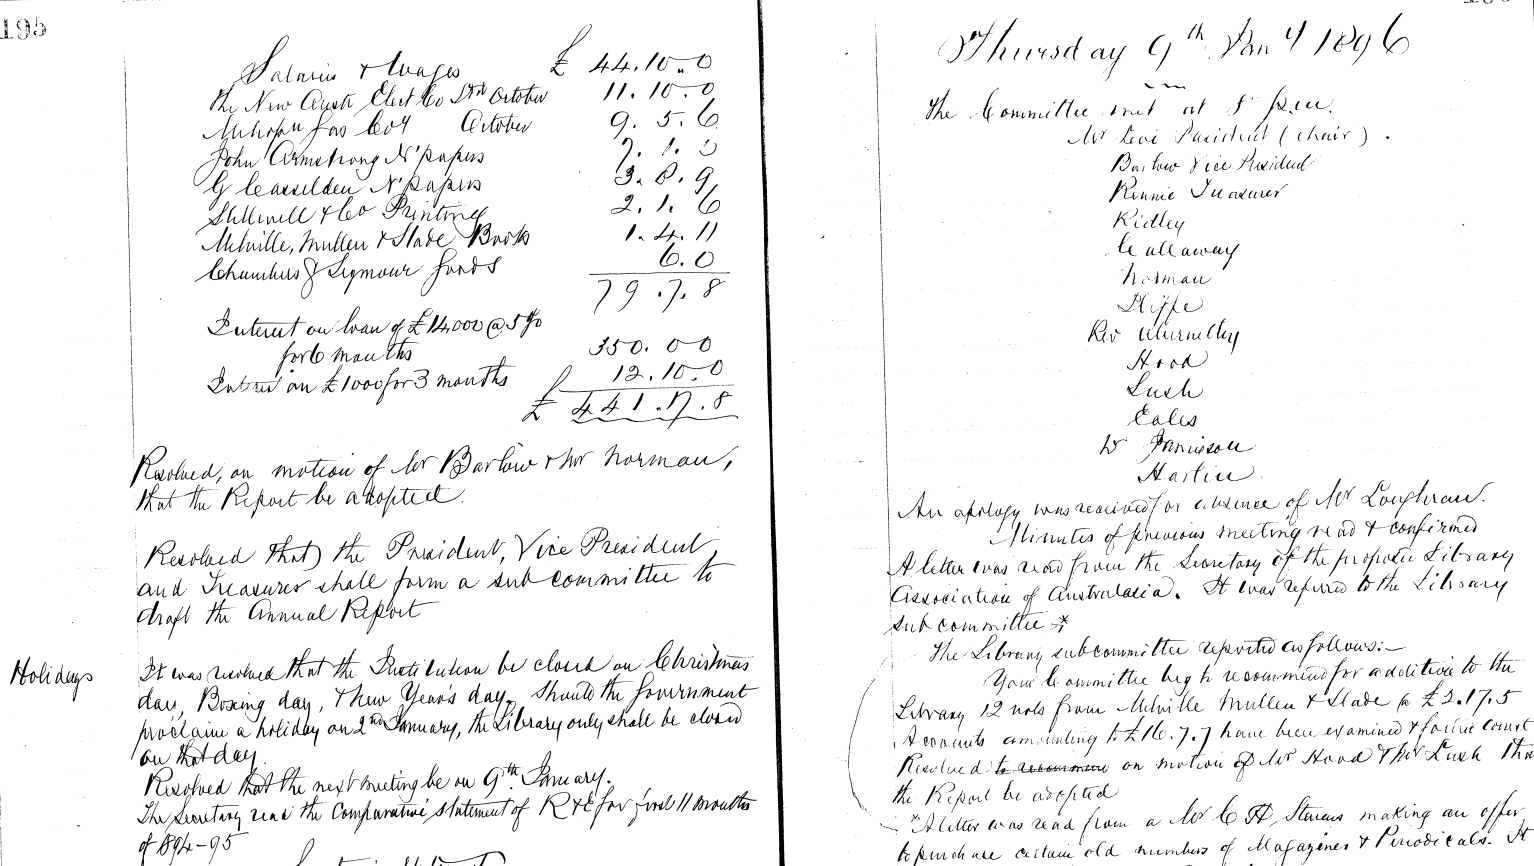 195
Salaries & Wages £ 44.10.0
The New Austn Elect Co Ltd October 11.10.0
Metropn Gas Coy October 9.5.6
John Armstrong N'papers
G Casselden N'papers 3.8.9
Stillwell & Co Printing 2.1.6
Melville, Mullen & Slade Books 1.4.11
Chambers & Seymour goods 6.0
79.7.8
Interest on loan of £14,000 @ 5%
for 6 months 350.00
Interest on £1000 for 3 months 12.10.0
£ 441.17.8
Resolved, on motion of Mr Barlow & Mr Norman,
that the Report be adopted.
Resolved that the President, Vice President,
and Treasurer shall form a sub committee to
draft the Annual Report
Holidays
It was resolved that the Institution be closed on Christmas
day, Boxing day, & New Year's day. Should the Government
proclaim a holiday on 2nd January, the Library only shall be closed
on that day.
Resolved that the next meeting be on 9th January.
The Secretary read the Comparative statement of R & E for first 11 months
of 1894-95
Thursday 9th Jany 1896
The Committee met at 8 p.m.
Mr Levi President (chair).
Barlow Vice President
Rennie Treasurer
Ridley
Callaway
Norman
Rev Abernethy
Hood
Lush
Eales
Dr Jamieson
Hartin
An apology was received for absence of Mr Loughran.
Minutes of previous meeting read & confirmed
A letter was read from the Secretary of the proposed Library
Association of Australasia. It was referred to the Library
sub committee *
The Library sub committee reported as follows:-
Your Committee beg to recommend for addition to the
Library 12 vols from Melville Mullen & Slade @ £2.17.5
Accounts amounting to £16.7.7 have been examined & found correct
Resolved to recommend on motion of Mr Hood & Mr Lush that
the Report be adopted
*A letter was read from a Mr C H Stevens making an offer
to purchase certain old numbers of Magazines & Periodicals. It